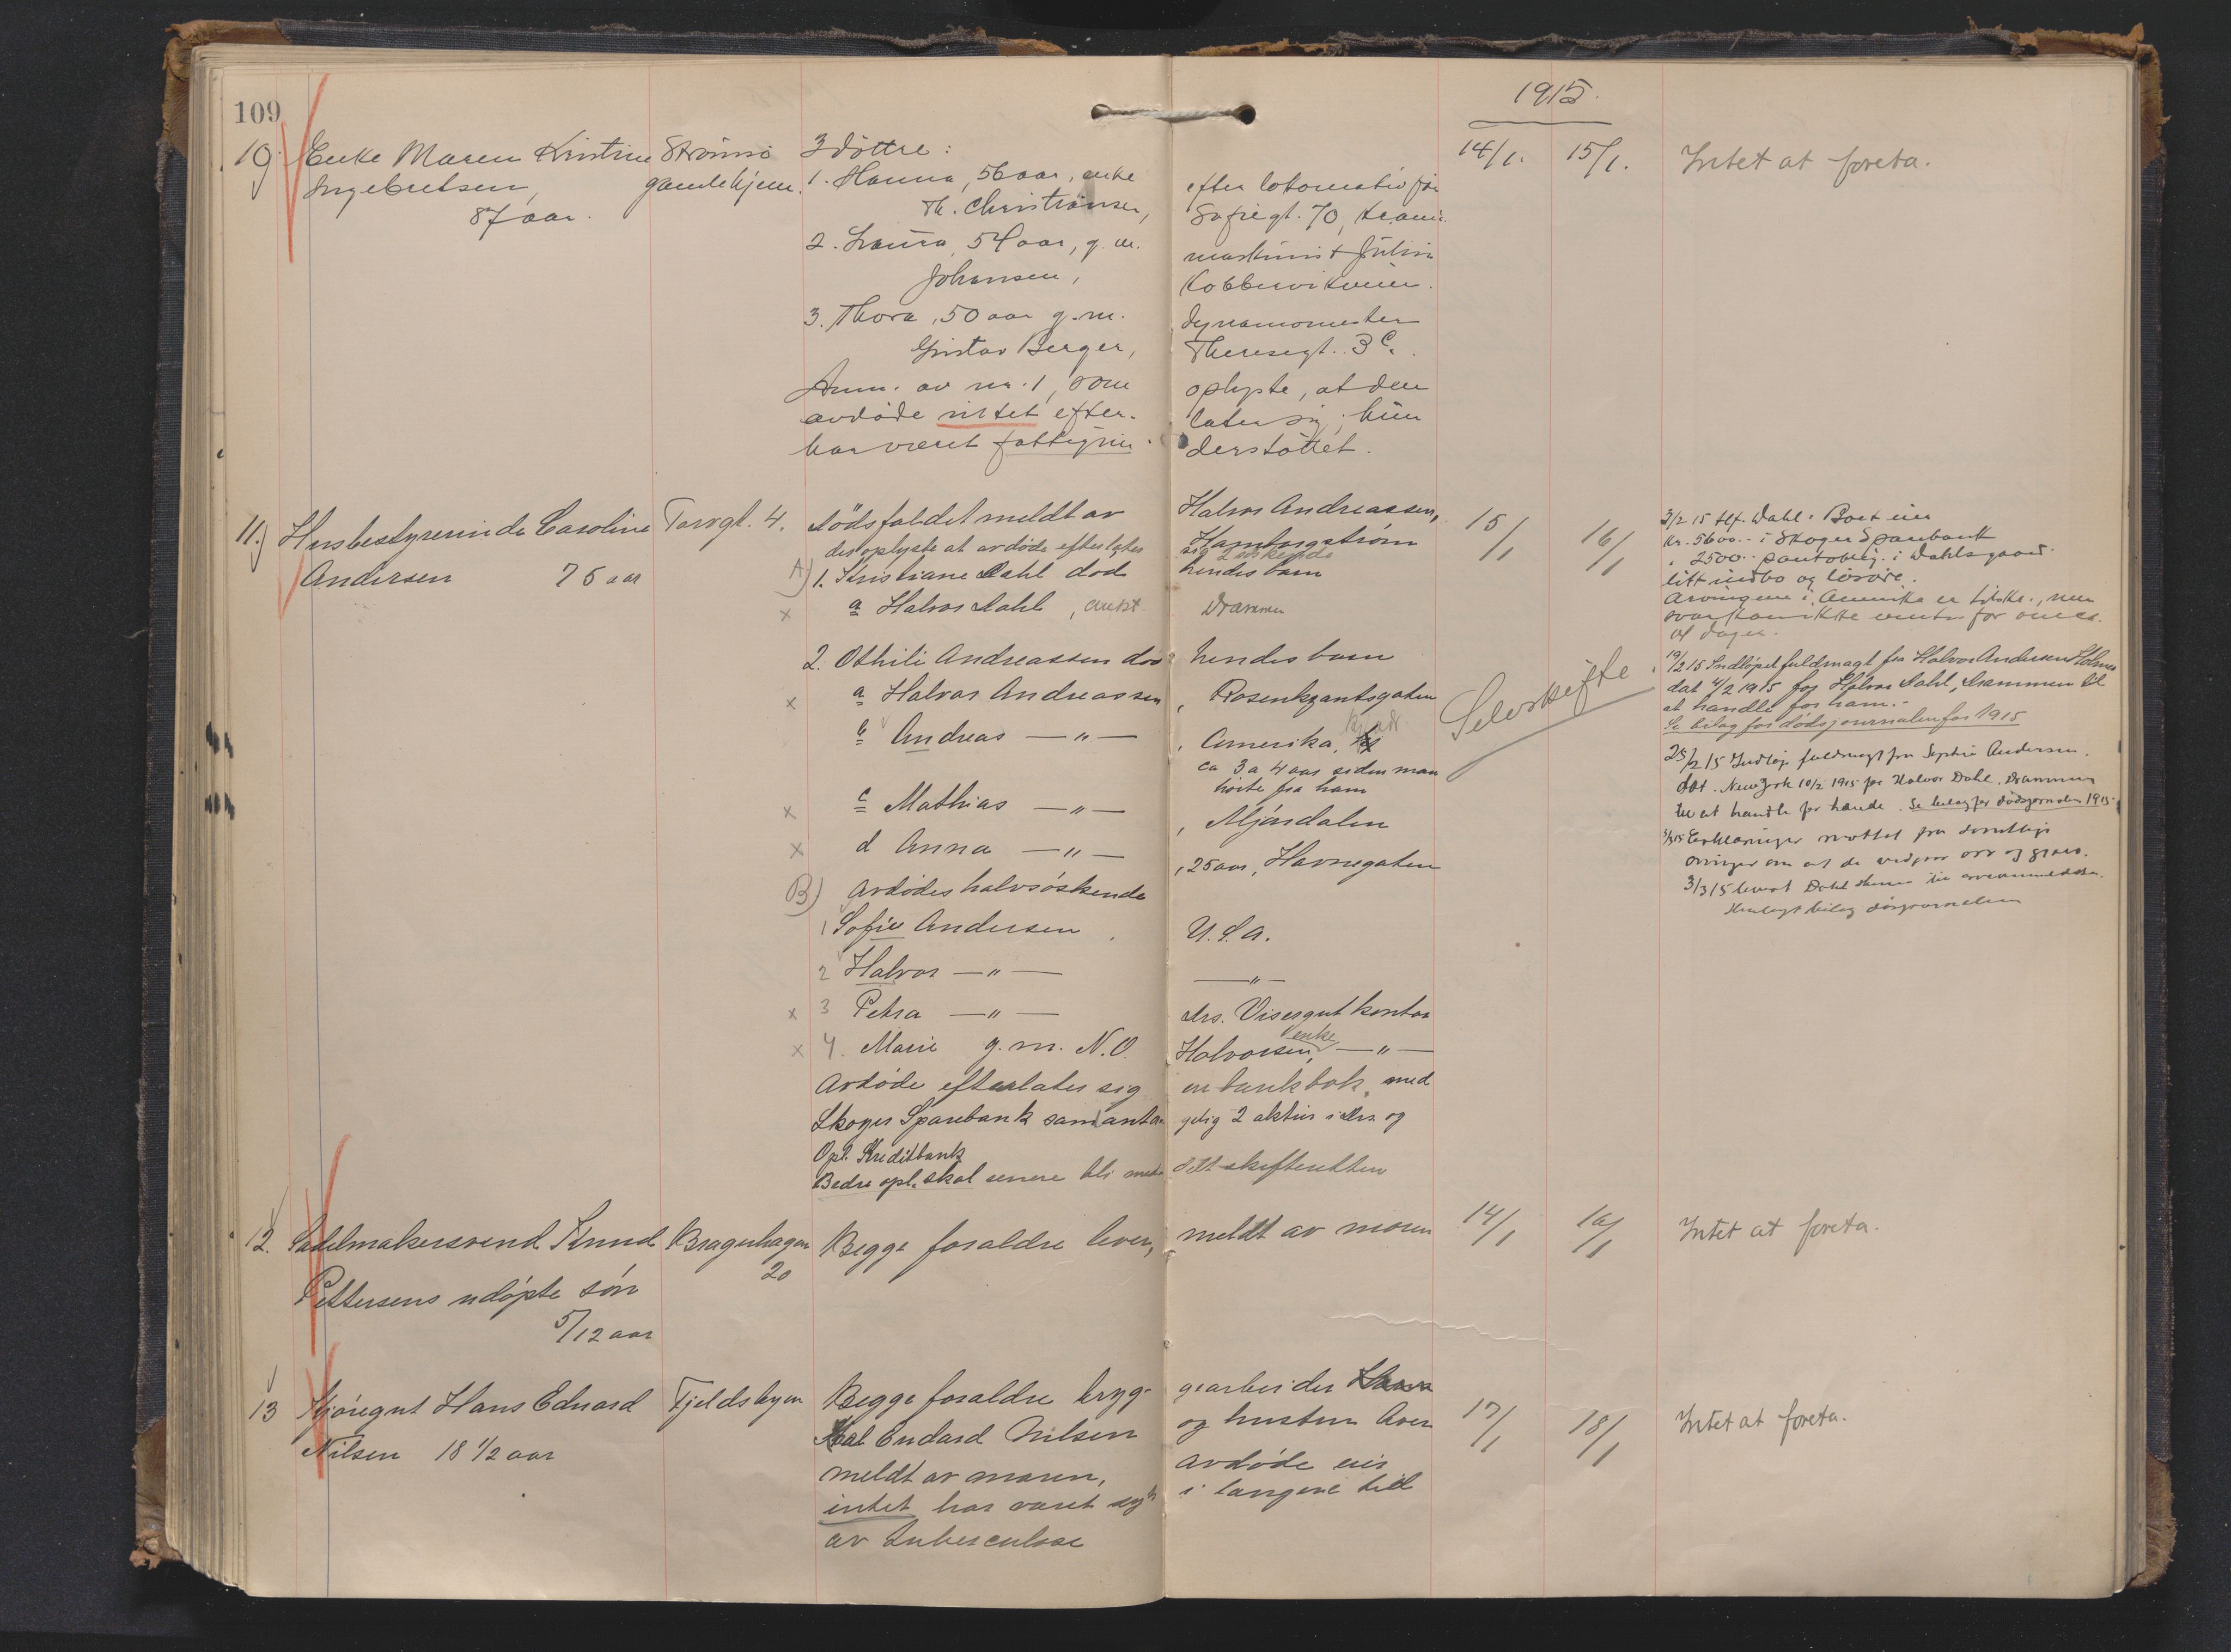 109
1915.
10. Enke Maren Kristine Strømsø 3 døttre: 14/1. 15/1. Intet at foreta.
Ingebretsen, gamlehjem. 1. Hanna, 56 aar, enke efter lokomotivfør
87 aar. Th. Christiansen, Sofiegt. 70,
2. Laura, 54 aar, g.m. maskinist Julius
Johansen, Kobbervikveien.
3. Thora, 50 aar g.m. dynamomester
Gustav Berger, Theresegt. 3c.
Anm. av nr. 1, som oplyste, at den
avdøde intet efter- later sig; hun
har været fattigun- derstøttet.
11.) Husbestyrerinde Caroline Torvgt. 4. Dødsfaldet meldt av Halvor Andreassen, 15/1 16/1
Andersen 76 aar
der oplyste at avdøde efterlater sig 2 søskende
A) 1. Kristiane Dahl død hendes barn
x a Halvor Dahl, Drammen
2. Othili Andreassen død hendes barn
x a Halvor Andreassen, Rosenkrantzgaten
b Andreas — " — , Amerika,
ca 3 a 4 aar siden man
hørte fra ham
x c Mathias — " — , Mjøndalen
x d Anna — " — , 25 aar, Havnegaten
B) Avdødes halvsøskende
1 Sofie Andersen, U.S.A.
2 Halvor — " — — " —
x 3 Petra — " — Drs. Visergutkontor
x 4. Marie g.m. N.O. Halvorsen, enke — " —
Avdøde efterlater sig en bankbok med
Skoger Sparebank samt anta- gelig 2 aktier i Drs. og
Opl. Kreditbank
Bedre opl. skal senere bli med- delt skifteretten
Selvskifte
3/2 15 tlf. Dahl. Boet eier
kr. 5600.- i Skoger Sparebank
" 2500.- pantoblig. i Dahlsgaard.
litt indbo og løsøre.
Arvingene i Amerika er tilskr., men
svar kan ikke ventes før om ca.
dager.
19/2 15 Indløpet fuldmagt fra Halvor Andersen Holmes
dat 4/2 1915 for Halvor Dahl, Drammen til
at handle for ham.-
Se bilag for dødsjournalen for 1915
25/2 15 Indløp fuldmagt fra Sophie Andersen.
dat. New York 10/2 1915 for Halvor Dahl, Drammen
til at handle for hende. Se bilag for dødsjournalen 1915.
Erklæringer mottat fra samtlige
arvinger om at de vedgaar arv og gjæld.
3/3 15 levert Dahl
12. Sadelmakersvend Knud Bragerhagen Begge foraldre lever, meldt av moren 14/1 16/1 Intet at foreta.
Pettersens udøpte søn 20
5/12 aar
13 Kjøregut Hans Edvard Fjeldsbyen Begge foraldre bryg- gearbeider 17/1 18/1 Intet at foreta.
Nilsen 18 1/2 aar Endard Nilsen og hustru lever
meldt av moren, avdøde eier
intet har været syk i længere tid
av tuberculose